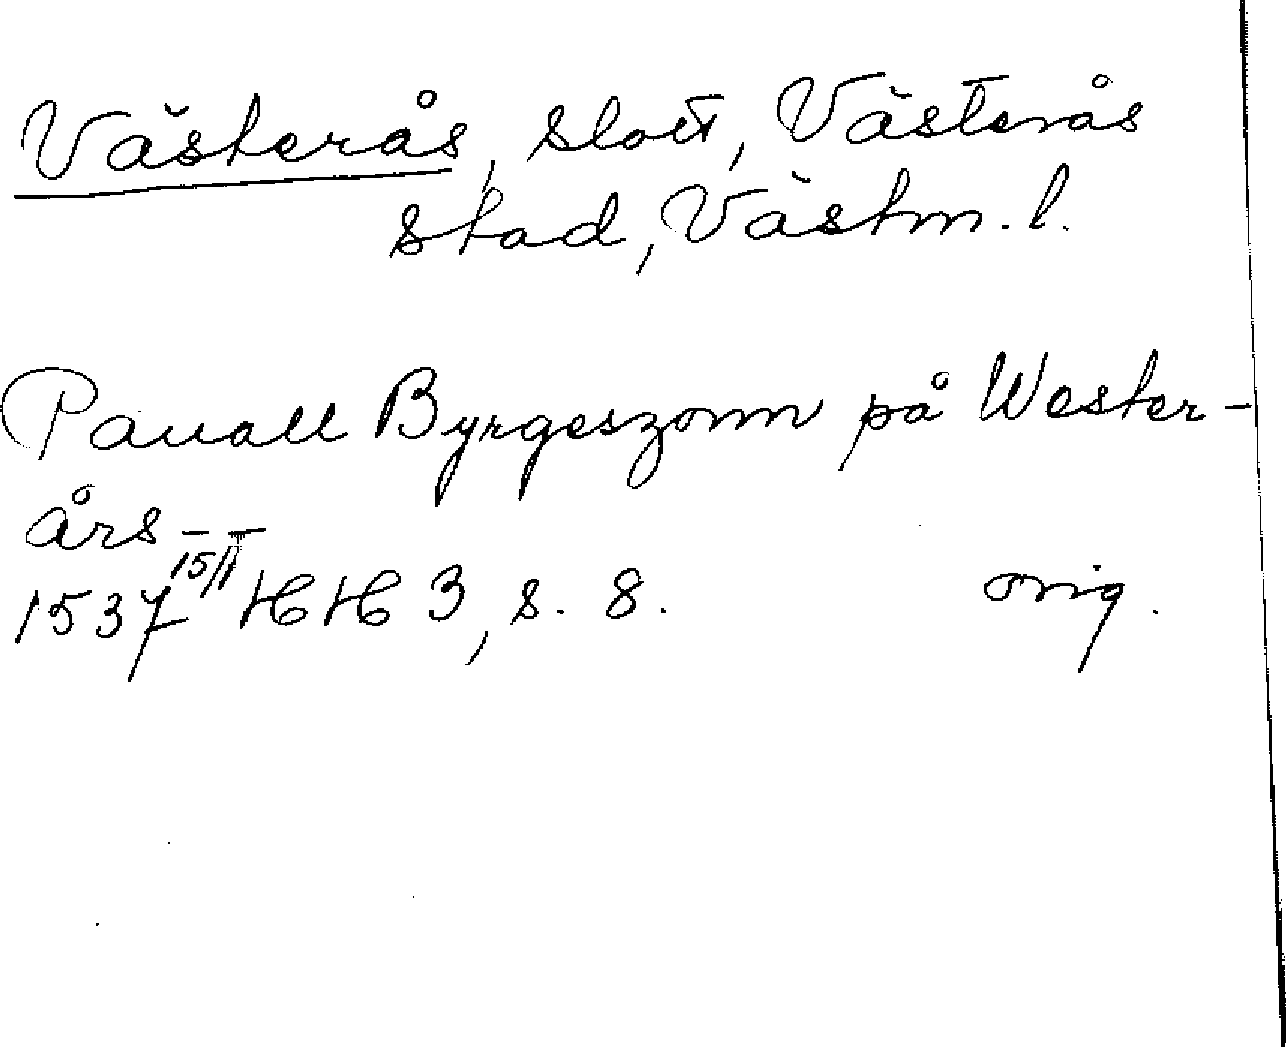 Västerås, slott, Västerås
stad, Västm. l.
Pauall Byrgeszonn på Wester-
års
1537 15/1 HH 3, s. 8. orig.